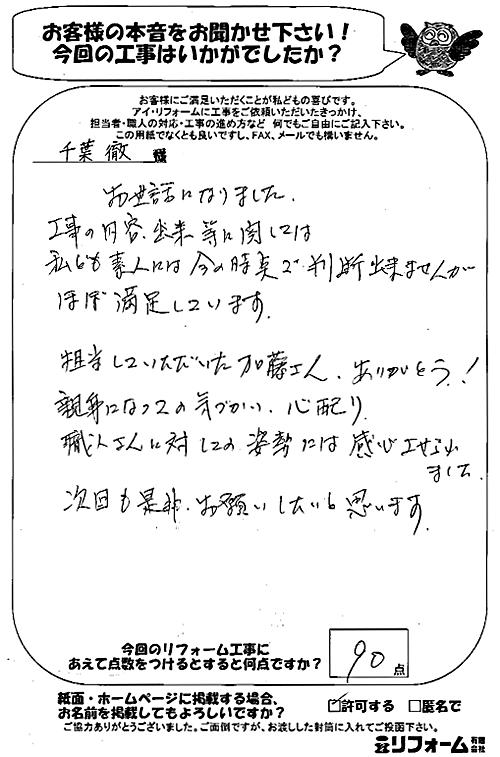 お客様の本音をお聞かせ下さい！
今回の工事はいかがでしたか？
お客様にご満足いただくことが私どもの喜びです。
アイ・リフォームに工事をご依頼いただいたきっかけ、
担当者・職人の対応・工事の進め方など 何でもご自由にご記入下さい。
この用紙でなくとも良いですし、FAX、メールでも構いません。
千葉 徹 様
お世話になりました.
工事の内容、出来 等に関しては
私ども素人には今の時点で判断出来ませんが
ほぼ満足しています.
担当していただいた加藤さん、ありがとう！
親身になっての気づかい、心配り、
職人さんに対しての姿勢には感心させられ
ました.
次回も是非、お願いしたいと思います.
今回のリフォーム工事に
あえて点数をつけるとすると何点ですか？
90 点
紙面・ホームページに掲載する場合、
お名前を掲載してもよろしいですか？
☑許可する □匿名で
ご協力ありがとうございました。ご面倒ですが、お渡しした封筒に入れてご投函下さい。
リフォーム 有限会社